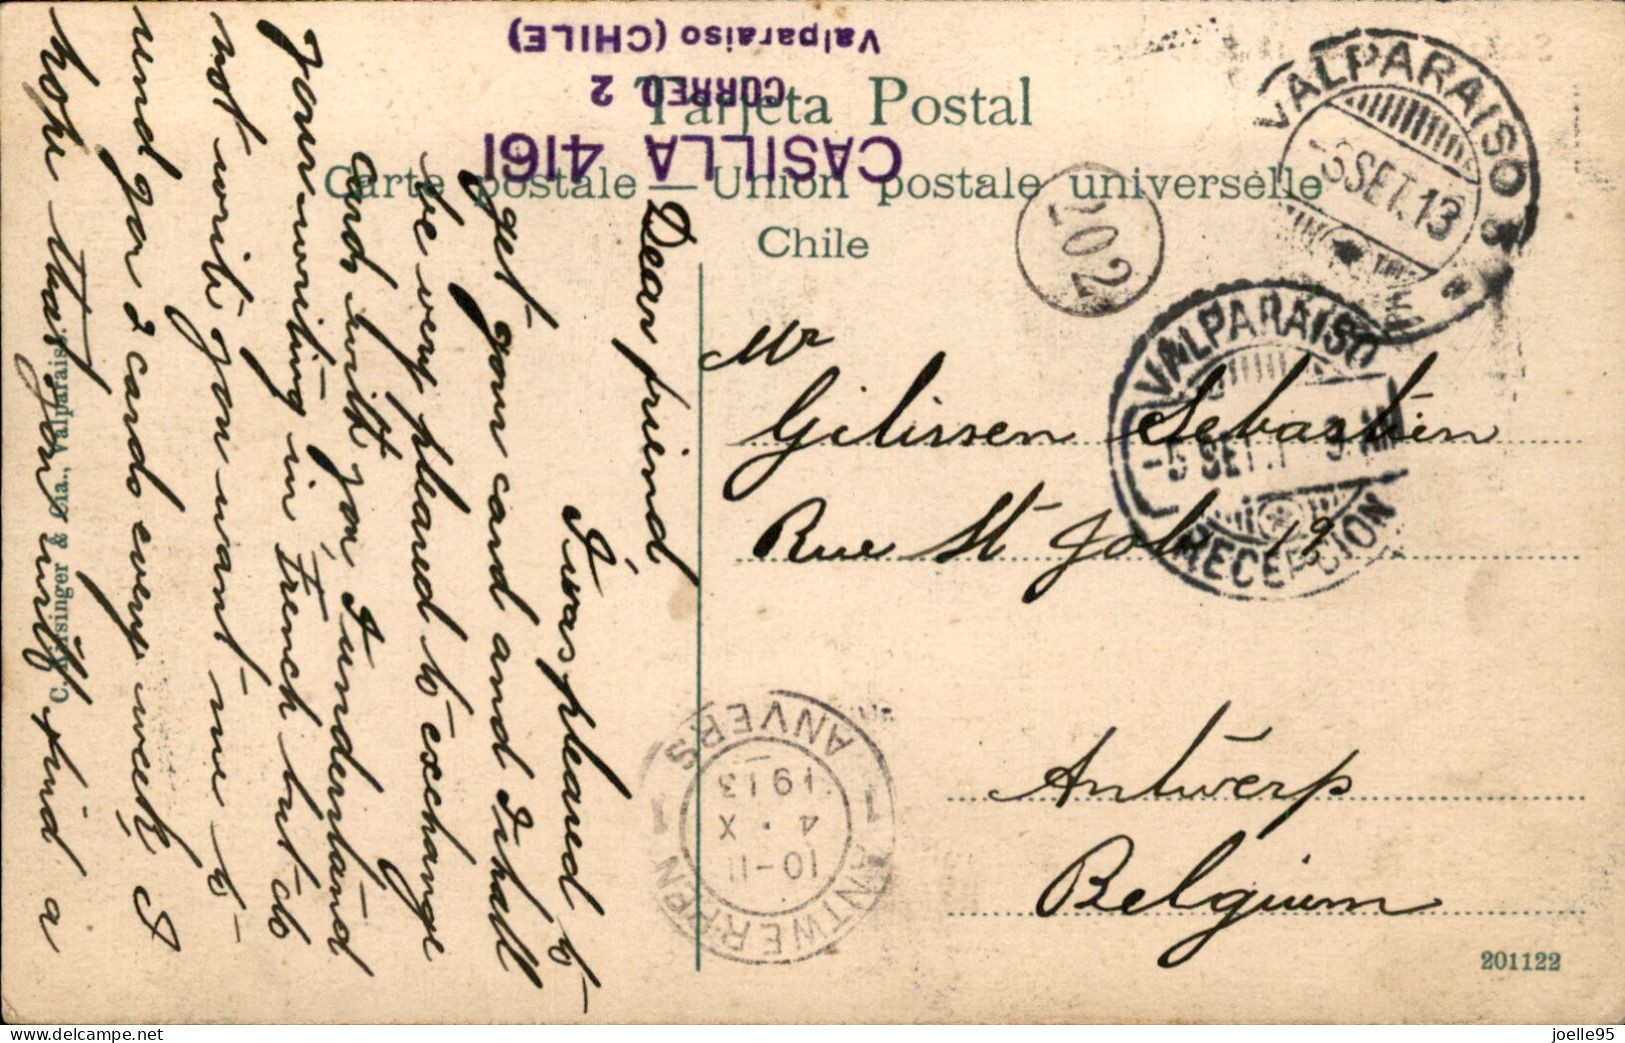 Tarjeta Postal
Carte postale — Union postale universelle
Chile
CASILLA 4161
CORREO 2
Valparaiso (CHILE)
VALPARAISO
SET. 13
202
VALPARAISO
5 SET. 1
RECEPCION
Mr
Gilissen Sebastien
Rue St Job 19
Antwerp
Belgium
Dear friend
I was pleased to
get your card and I shall
be very pleased to exchange
cards with you, I understand
your writing in French but do
not write you want me to
send you 2 cards every week I
hope that you will find a
C. & Cia., Valparaiso
ANTWERPEN 1 ANVERS 1
10-11
4 X
1913
201122
delcampe.net
joelle95